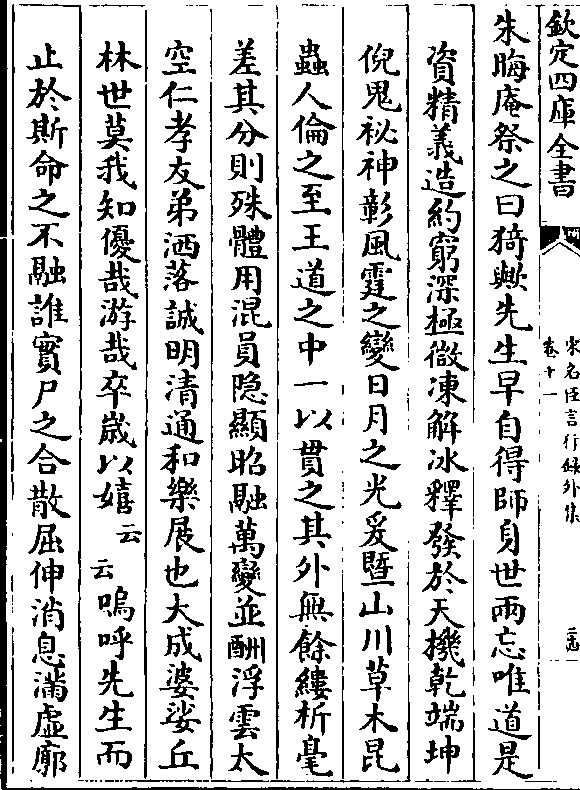 欽定四庫全書
宋名臣言行録外集
卷十一
三
朱晦庵祭之曰猗歟先生早自得師身世兩忘唯道是
資精義造約窮深極微凍解冰釋發於天機乾端坤
倪鬼祕神彰風霆之變日月之光爰暨山川草木昆
蟲人倫之至王道之中一以貫之其外無餘縷析毫
差其分則殊體用混員隐顯昭融萬變並酬浮雲太
空仁孝友弟洒落誠明清通和樂展也大成婆娑丘
林世莫我知優哉游哉卒歳以嬉云云嗚呼先生而
止於斯命之不融誰實尸之合散屈伸消息滿虛廓